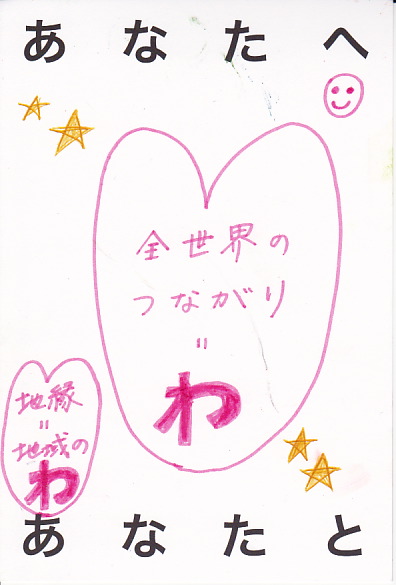 あなたへ
全世界の
つながり
=
わ
地縁
=
地域の
わ
あなたと